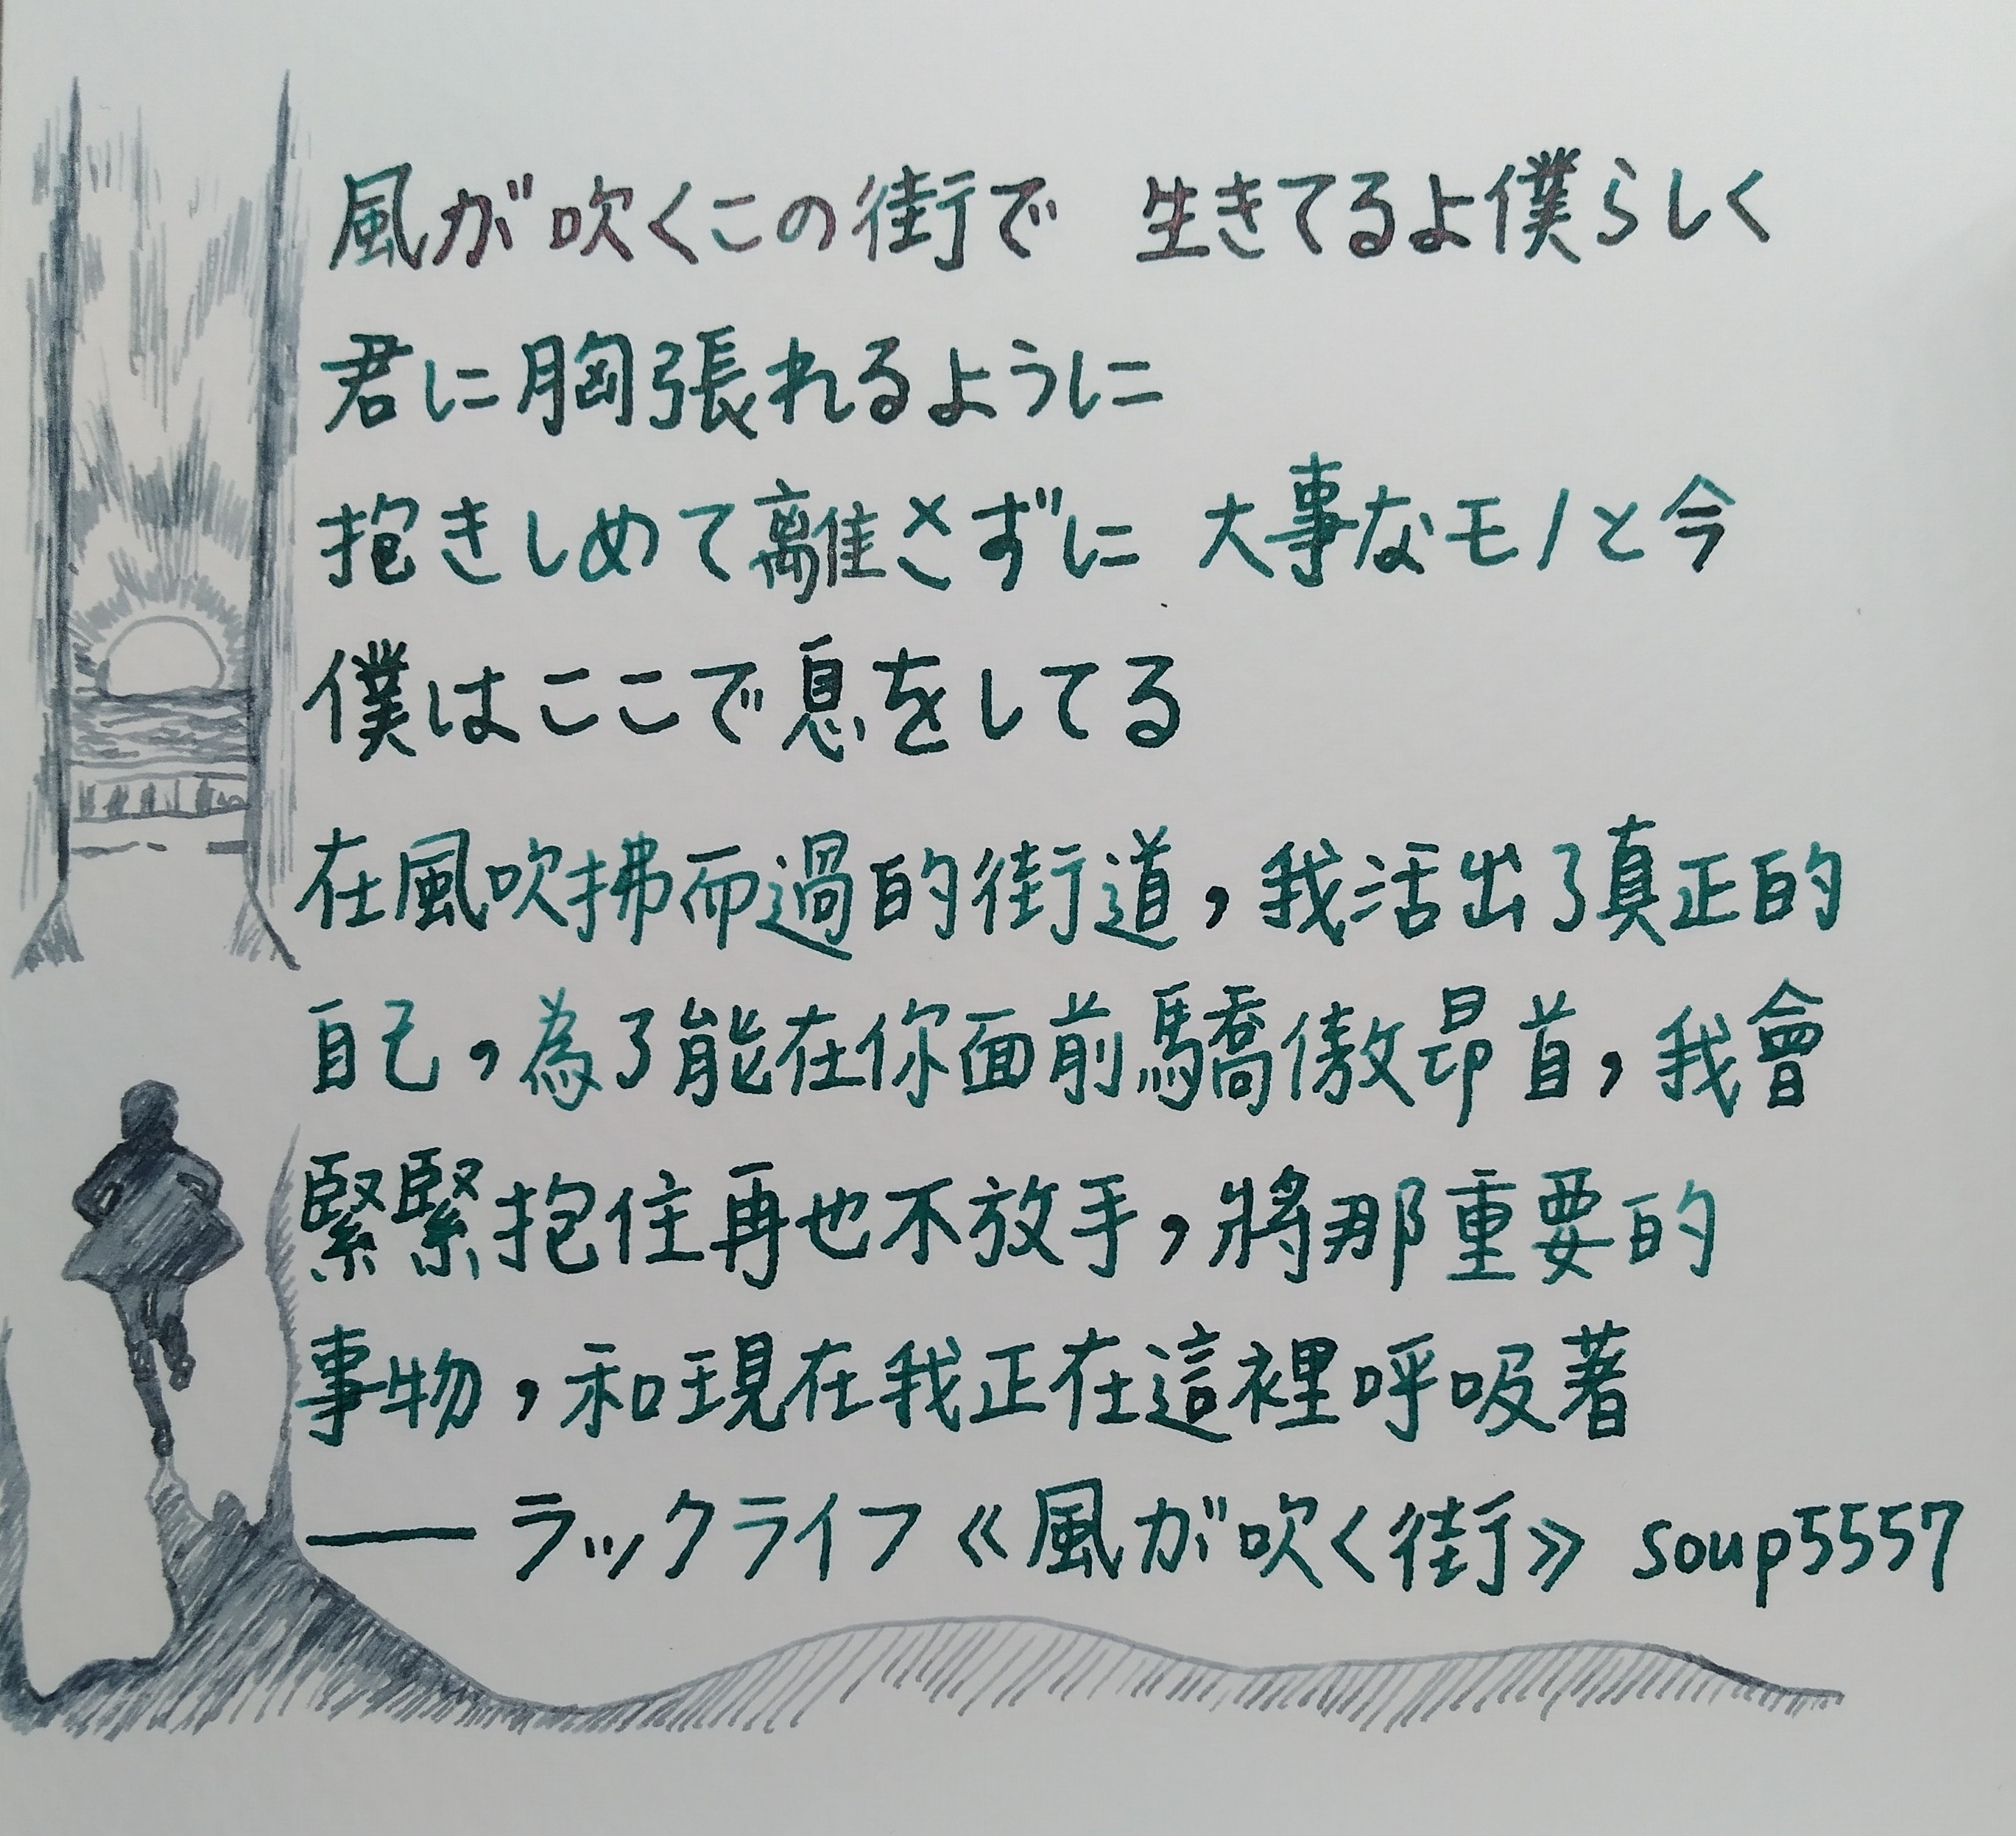 風が吹くこの街で　生きてるよ僕らしく
君に胸張れるように
抱きしめて離さずに 大事なモノと今
僕はここで息をしてる
在風吹拂而過的街道，我活出了真正的
自己，為了能在你面前驕傲昂首，我會
緊緊抱住再也不放手，將那重要的
事物，和現在我正在這裡呼吸著
—— ラックライフ《風が吹く街》 soup5557